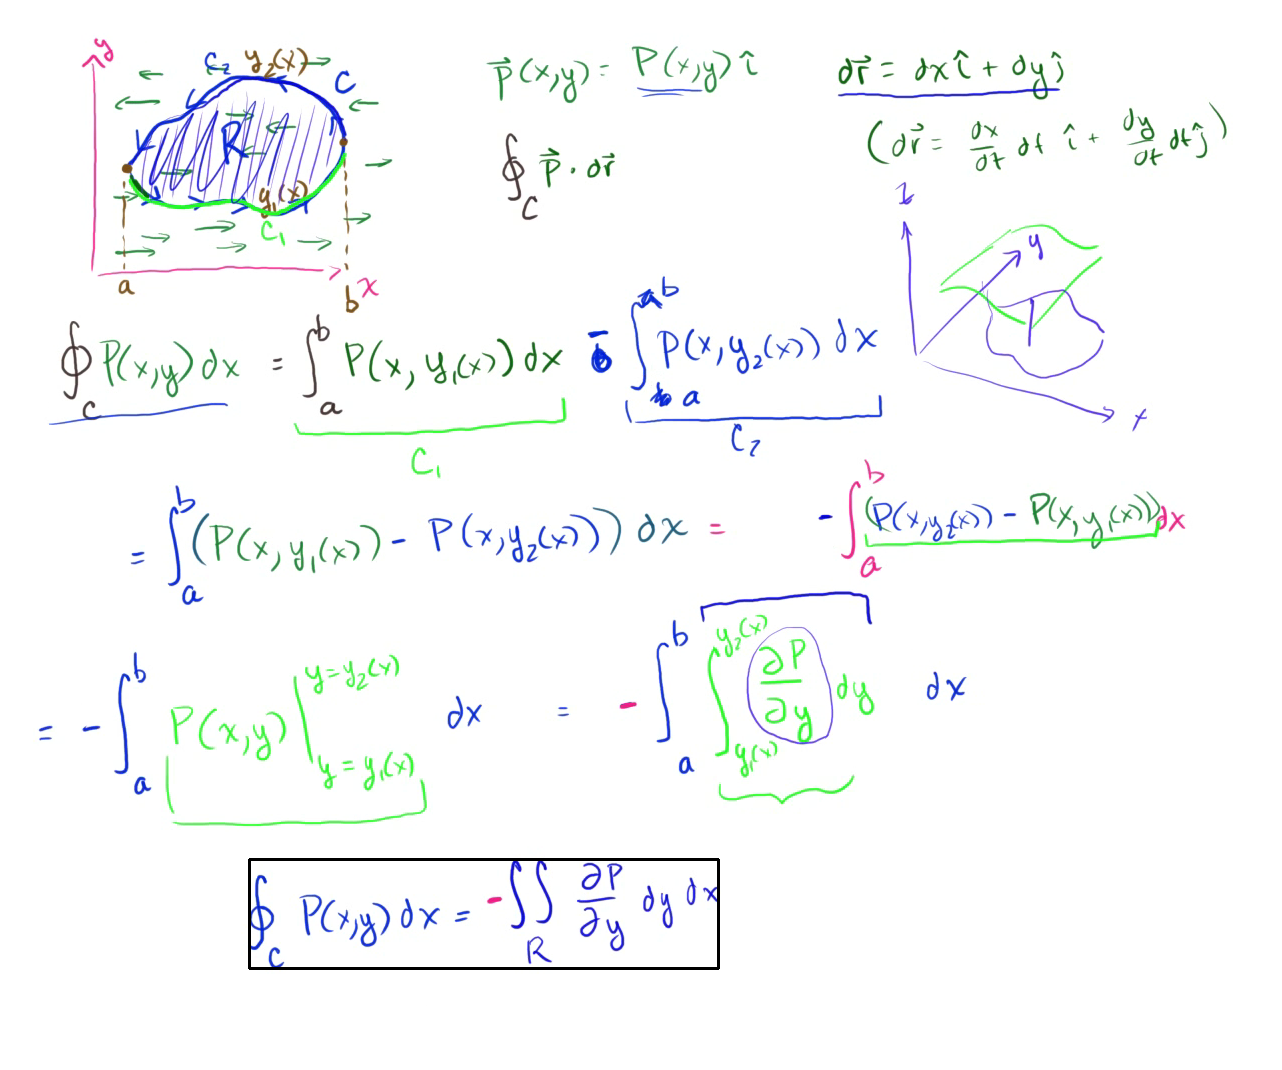 y
C₂ y₂(x)
C
R
y₁(x)
C₁
a
b x
p⃗(x,y) = P(x,y) î
dr⃗ = dx î + dy ĵ
∮_C p⃗ · dr⃗
(dr⃗ = dx/dt dt î + dy/dt dt ĵ)
z
y
x
∮_C P(x,y) dx = ∫_a^b P(x, y₁(x)) dx - ∫_a^b P(x, y₂(x)) dx
C₁
C₂
= ∫_a^b (P(x, y₁(x)) - P(x, y₂(x))) dx = - ∫_a^b (P(x, y₂(x)) - P(x, y₁(x))) dx
= - ∫_a^b P(x,y) |_{y = y₁(x)}^{y = y₂(x)} dx = - ∫_a^b ∫_{y₁(x)}^{y₂(x)} ∂P/∂y dy dx
∮_C P(x,y) dx = - ∬_R ∂P/∂y dy dx